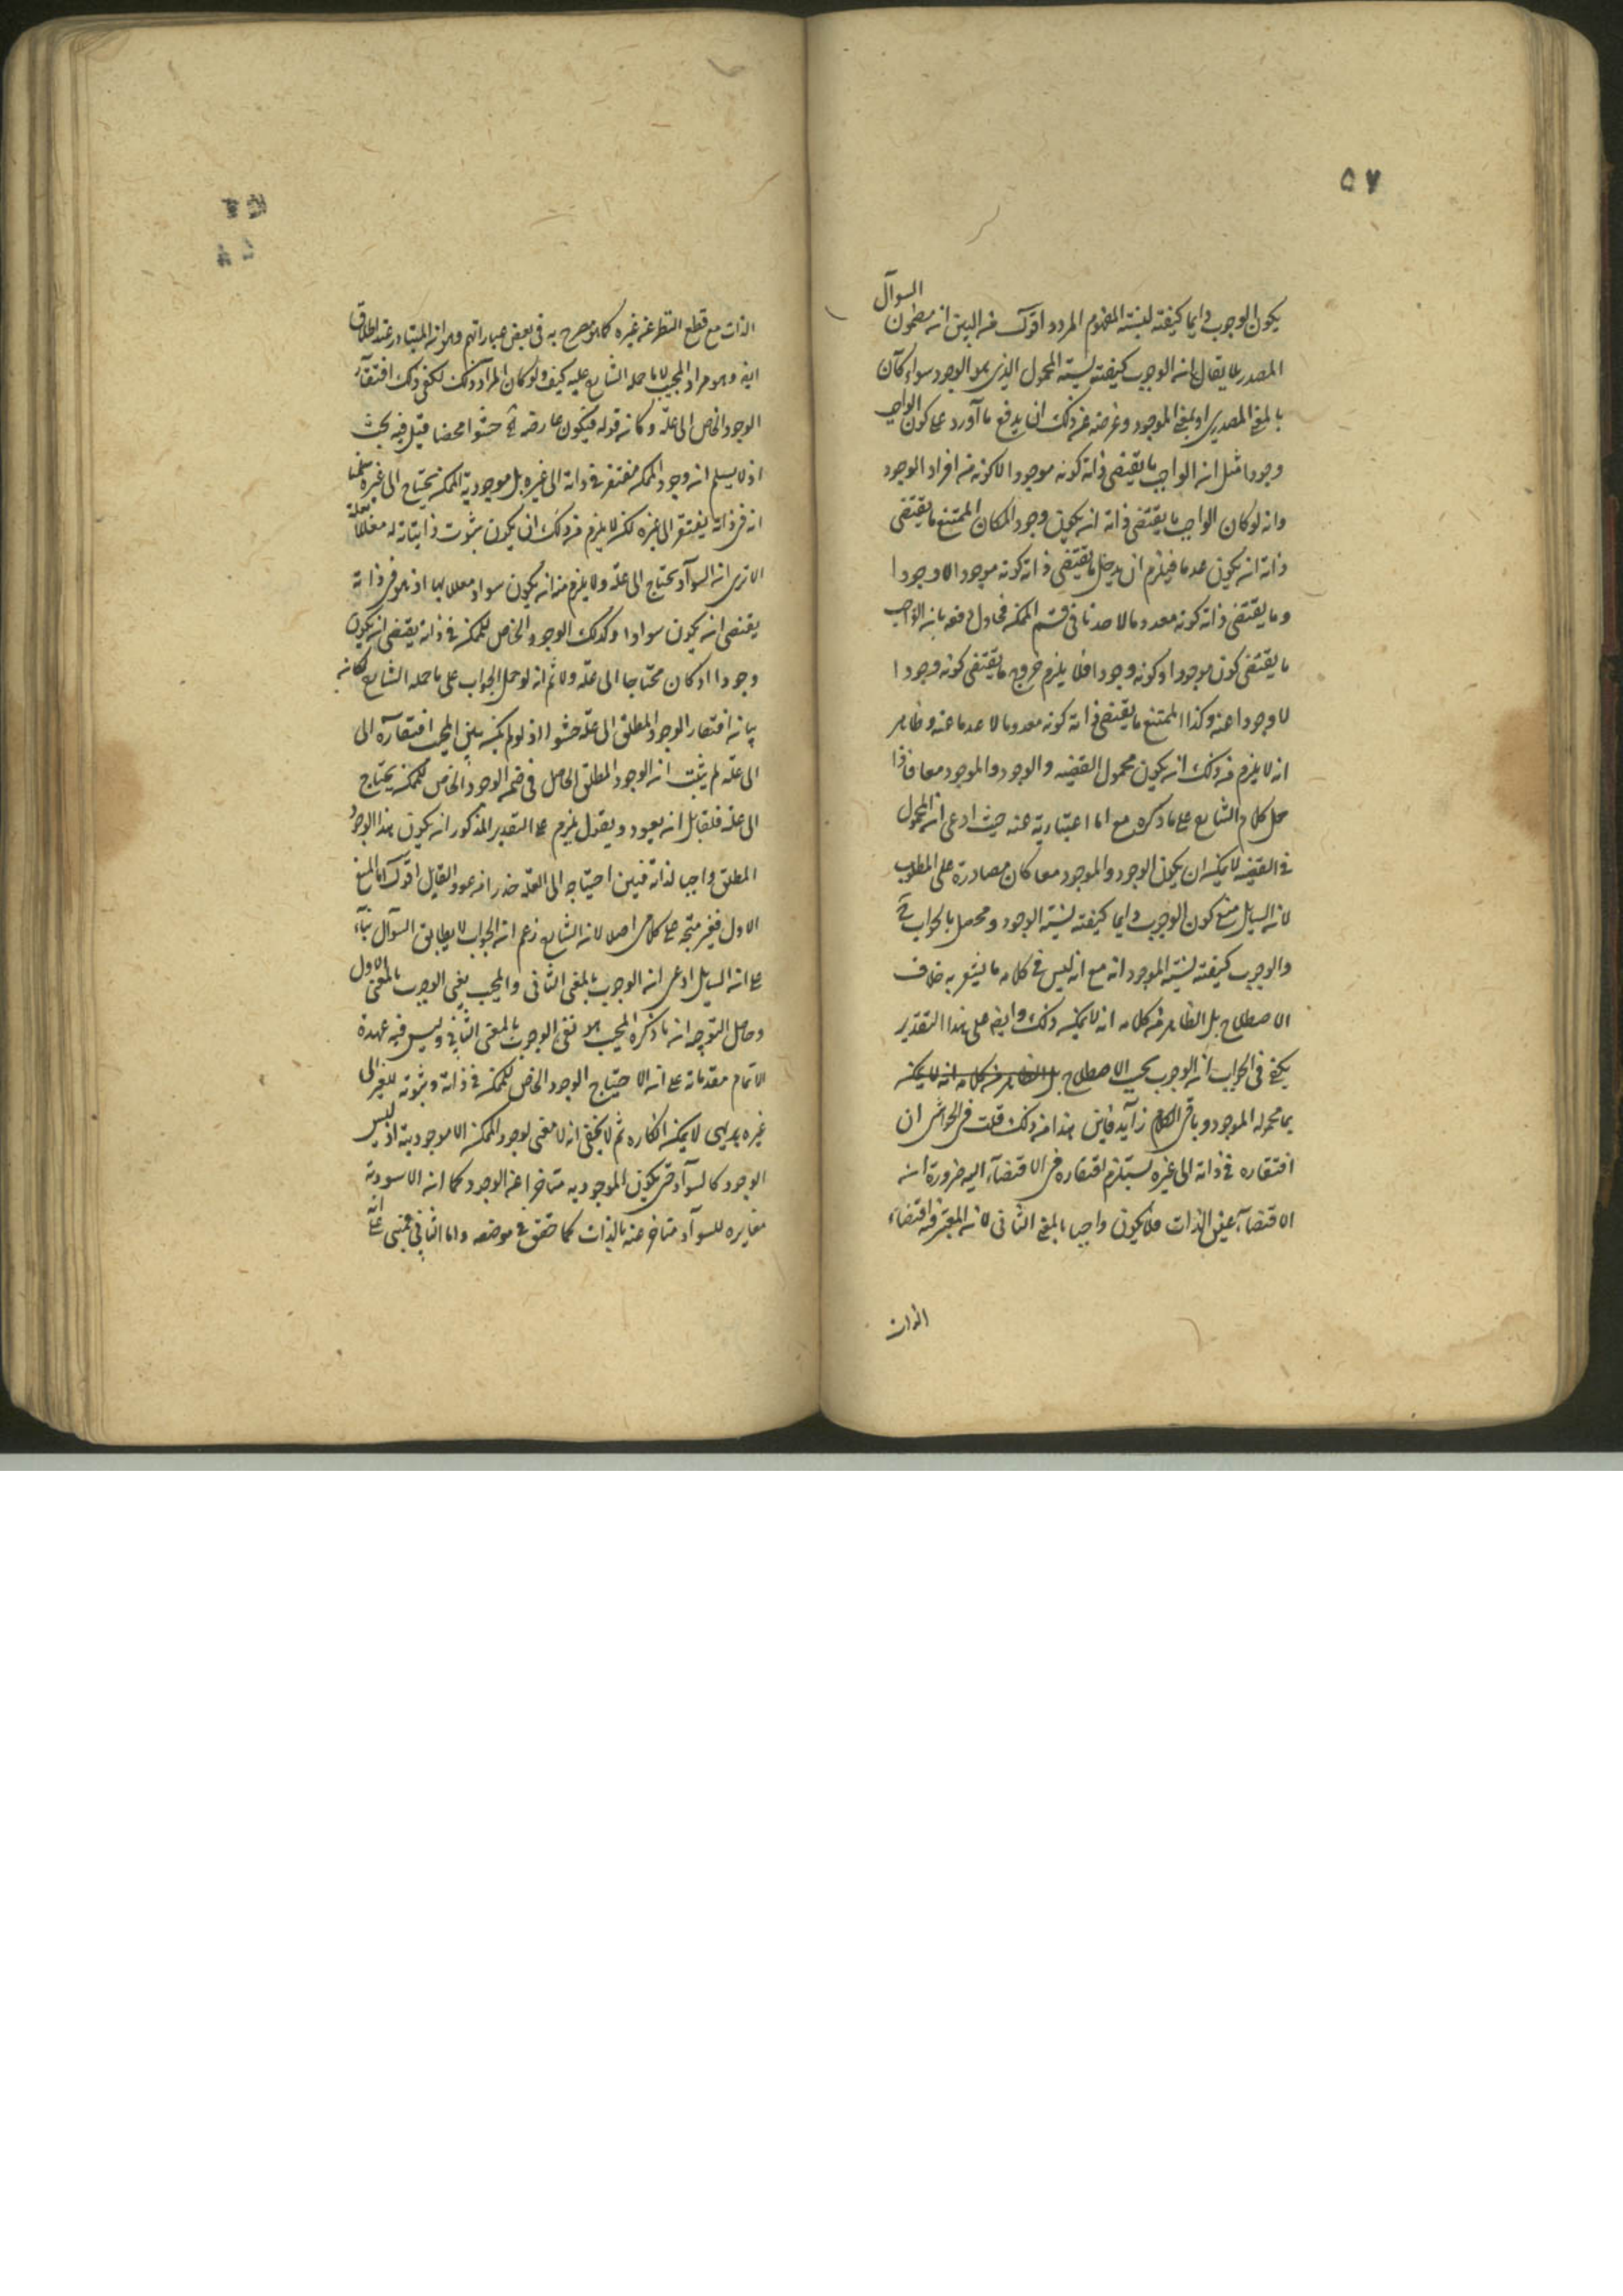 ۵۷
السوآل
يكون الوجوب دايما كيفية لنسبة المفهوم المردد اقول من البين ان مضمون
المصدر لا يقال ان الوجوب كيفية نسبة المحمول الذي هو الوجود سواء كان
بالمعنى المصدري او بمعنى الموجود وغرضه من ذلك ان يدفع ما اورد على كون الواجب
وجودا مثل ان الواجب ما يقتضى ذاته كونه موجودا لا كونه من افراد الوجود
وانه لو كان الواجب ما يقتضى ذاته ان يكون وجود المكان الممتنع ما يقتضى
ذاته ان يكون عدما فيلزم ان يدخل ما يقتضى ذاته كونه موجودا لا وجودا
وما يقتضى ذاته كونه معدوما لا عدما فى قسم الممكن فحاول دفعه بان الواجب
ما يقتضى كونه موجودا وكونه وجودا فلا يلزم خروج ما يقتضى كونه موجودا
لا وجودا عنه وكذا الممتنع ما يقتضى ذاته كونه معدوما لا عدما عنه وظاهر
انه لا يلزم من ذلك ان يكون محمول القضيه والوجود والموجود معا فاذا
حمل كلام الشارح على ما ذكره مع اما اعتباريته عنه حيث ادعى ان المحمول
فى القضيه لا يمكن ان يكون الوجود والموجود معا كان مصادرة على المطلوب
لان السايل منع كون الوجوب دايما كيفية نسبة الوجود ومحصل الجواب
والوجوب كيفية نسبة الموجود انه مع انه ليس فى كلامه ما يشعر به خلاف
الاصطلاح بل الظاهر من كلامه انه لا يمكن ذلك وايضا على هذا التقدير
يكفى فى الجواب ان الوجوب بحسب الاصطلاح بل الظاهر من كلامه انه لا يمكن
بما محموله الموجود وباقى الكلام زايد فاين هذا من ذلك قلت فى الحواشى ان
افتقاره فى ذاته الى غيره يستلزم افتقاره فى الاقتضآء اليه ضرورة ان
الاقتضآء عين الذات فلا يكون واجبا بالمعنى الثانى لان المعتبر فيه اقتضاء
الذات
الذات مع قطع النظر عن غيره كما هو مصرح به فى بعض عباراتهم وهو ان المتبادر عند اطلاق
ايضا وهو مراد المجيب لا ما حمله الشارح عليه كيف ولو كان المراد ذلك لكفى ذلك افتقار
الوجود الخاص الى علة وكان قوله فيكون عارضه حشوا محضا قيل فيه بحث
اذ لا يسلم ان وجود الممكن مفتقر فى ذاته الى غيره بل موجودية الممكن يحتاج الى غيره سلمنا
انه فى ذاته يفتقر الى غيره لكن لا يلزم من ذلك ان يكون ثبوت ذاتياته له معللا بعلة
الا ترى ان السوآد يحتاج الى علة ولا يلزم منه ان يكون سوادا معللا بها اذ هو فى ذاته
يقتضى ان يكون سوادا وكذلك الوجود الخاص للممكن فى ذاته يقتضى ان يكون
وجودا اذ كان محتاجا الى علة ولا ثم انه لو حمل الجواب على ما حمله الشارح لكان
بيان افتقار الوجود المطلق الى علة حشوا اذ لو لم يكن يبين المجيب افتقاره الى
الى علة لم يثبت ان الوجود المطلق الحاصل فى ضمن الوجود الخاص للممكن يحتاج
الى علة فلقايل ان يعود ويقول يلزم على التقدير المذكور ان يكون هذا الوجود
المطلق واجبا لذاته فبين احتياجه الى العلة حذرا من عود القايل اقول اما المنع
الاول فغير متجه على كلامى اصلا لان الشارح زعم ان الجواب لا يطابق السوآل بنآء
على ان السايل ادعى ان الوجوب بالمعنى الثانى والمجيب نفى الوجوب بالمعنى الاول
وحاصل التوجيه ان ما ذكره المجيب هو نفى الوجوب بالمعنى الثانى وليس فيه عهدة
الا تمام مقدماته على ان الاحتياج الوجود الخاص للممكن فى ذاته وثبوته للغير الى
غيره بديهى لا يمكن انكاره ثم لا يخفى انه لا معنى لوجود الممكن الا موجوديته اذ ليس
الوجود كالسوآد حتى يكون الموجودية متاخرا عن الوجود كما ان الاسودية
مغايره للسوآد متاخر عنه بالذات كما حقق فى موضعه واما الثانى فمبنى على انه